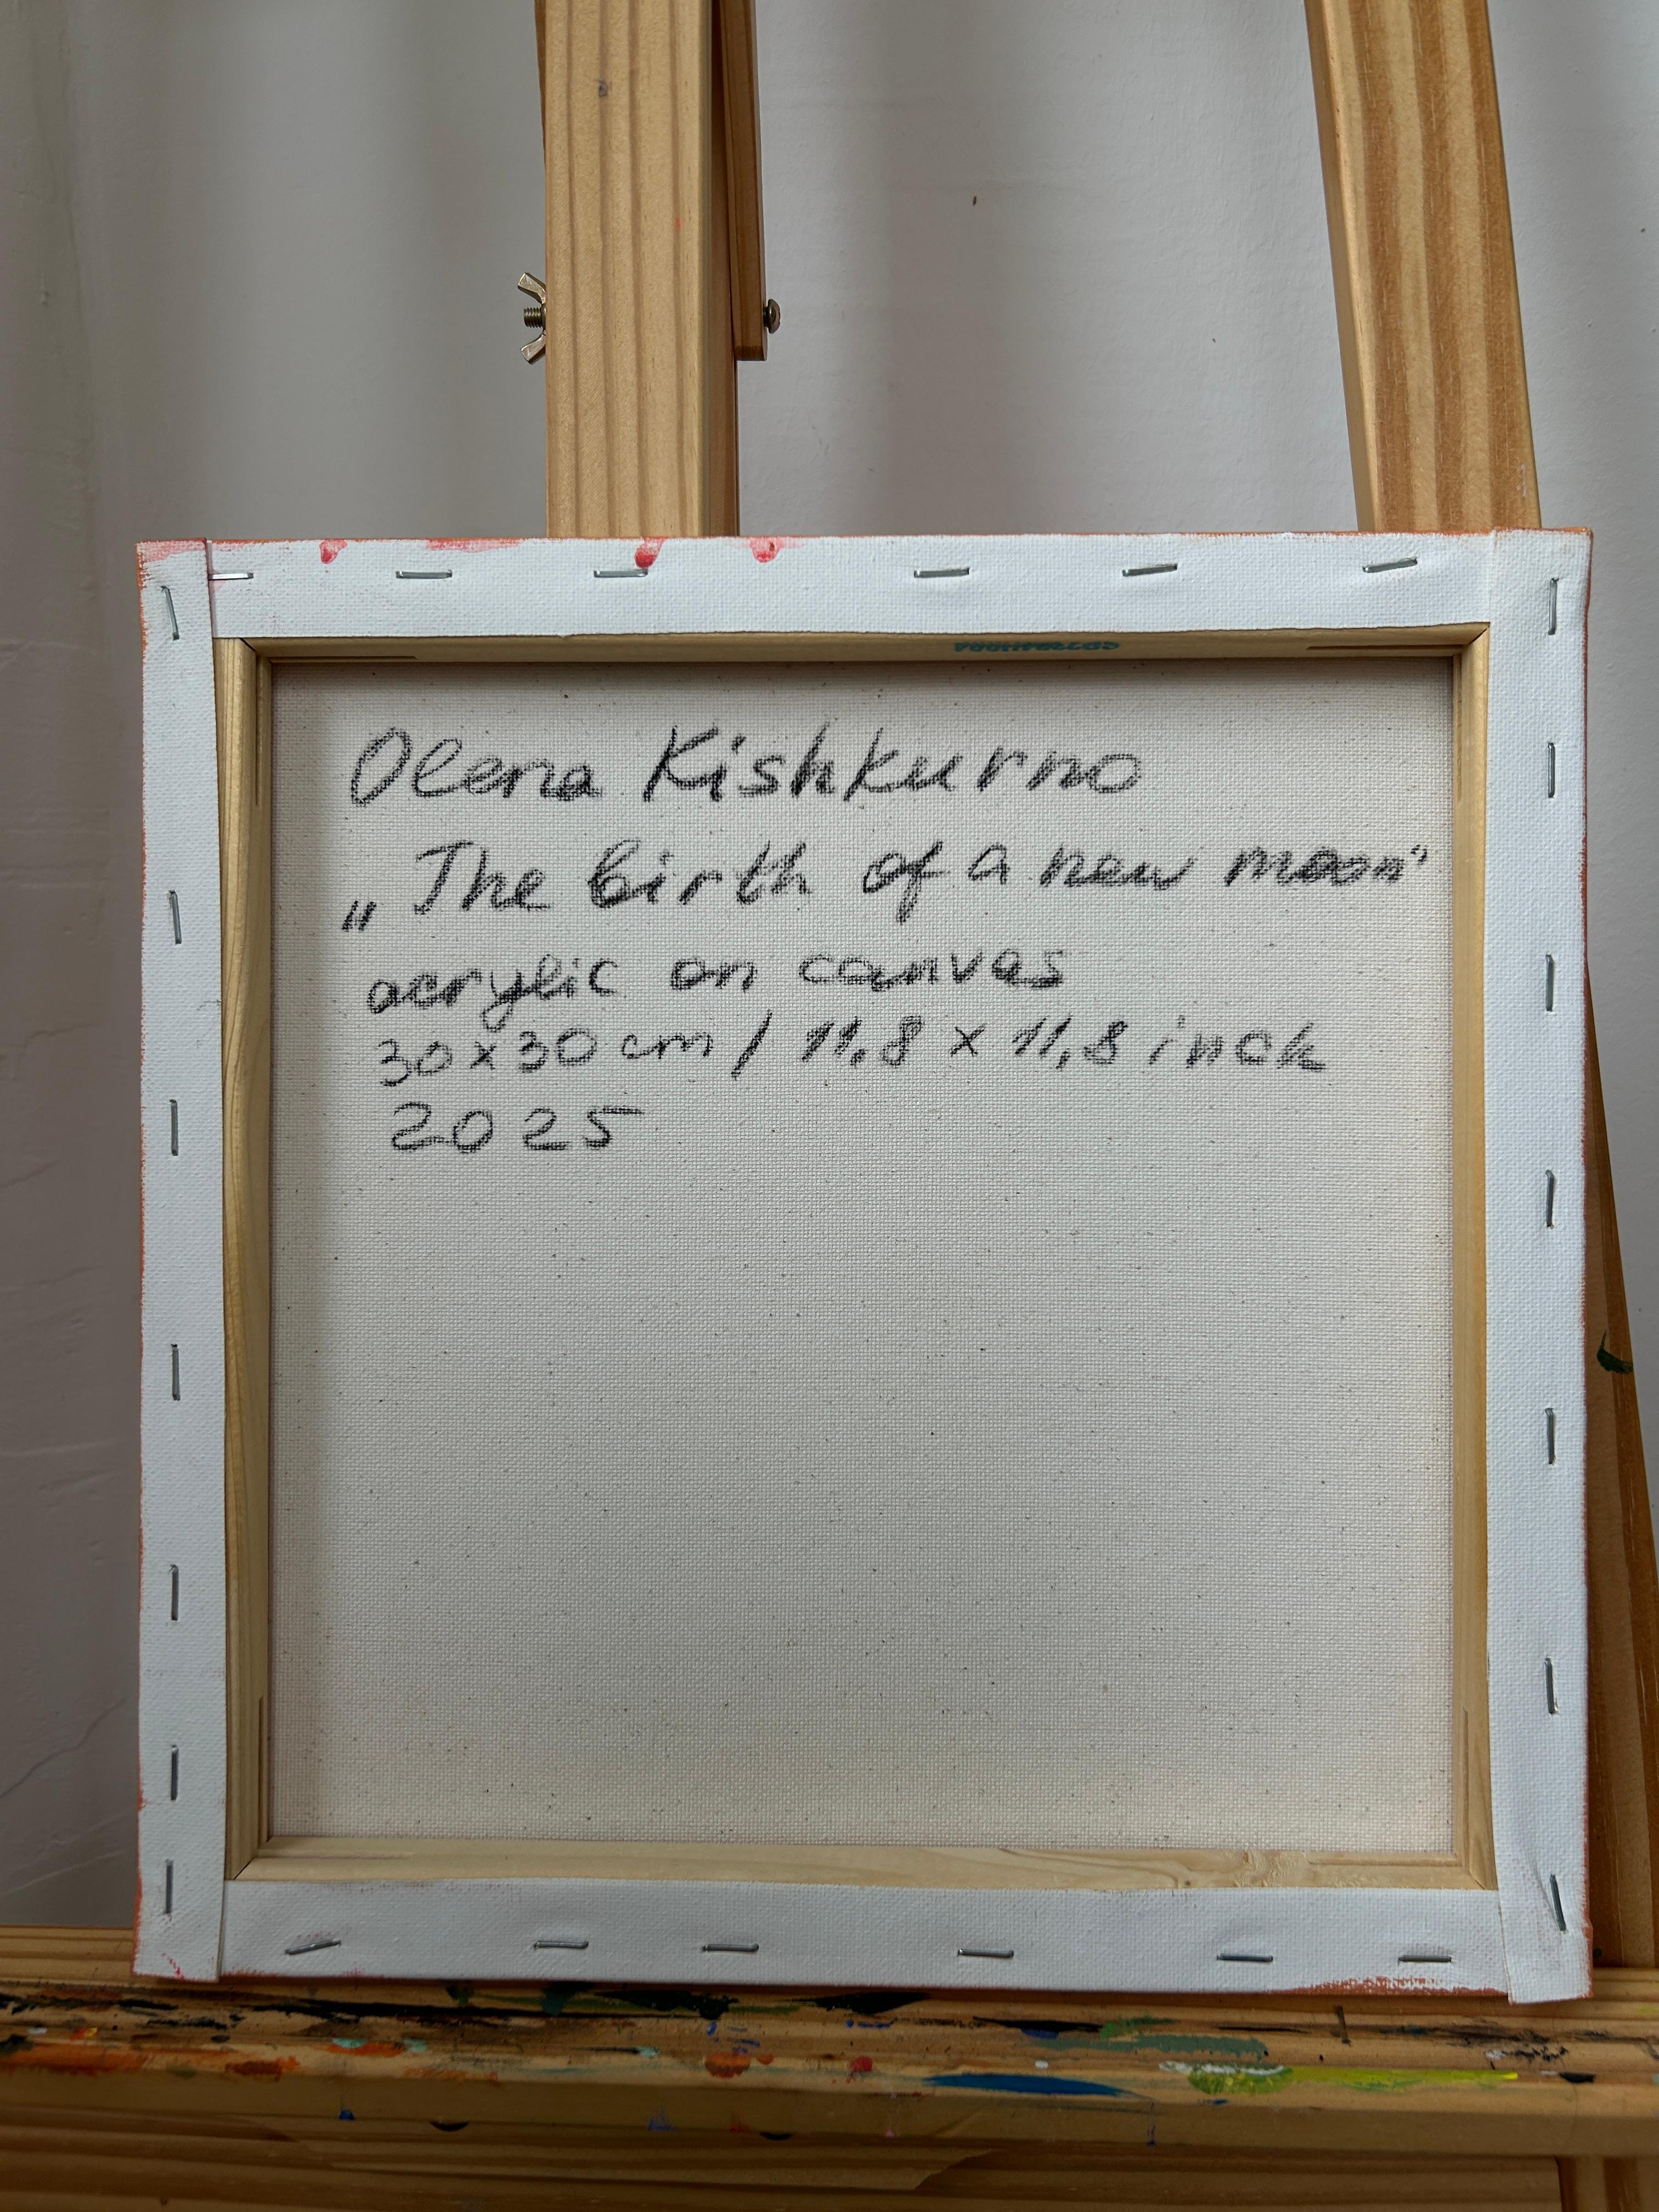 Olena Kishkurno
„The birth of a new moon"
acrylic on canvas
30x30 cm / 11,8 x 11,8 inch
2025